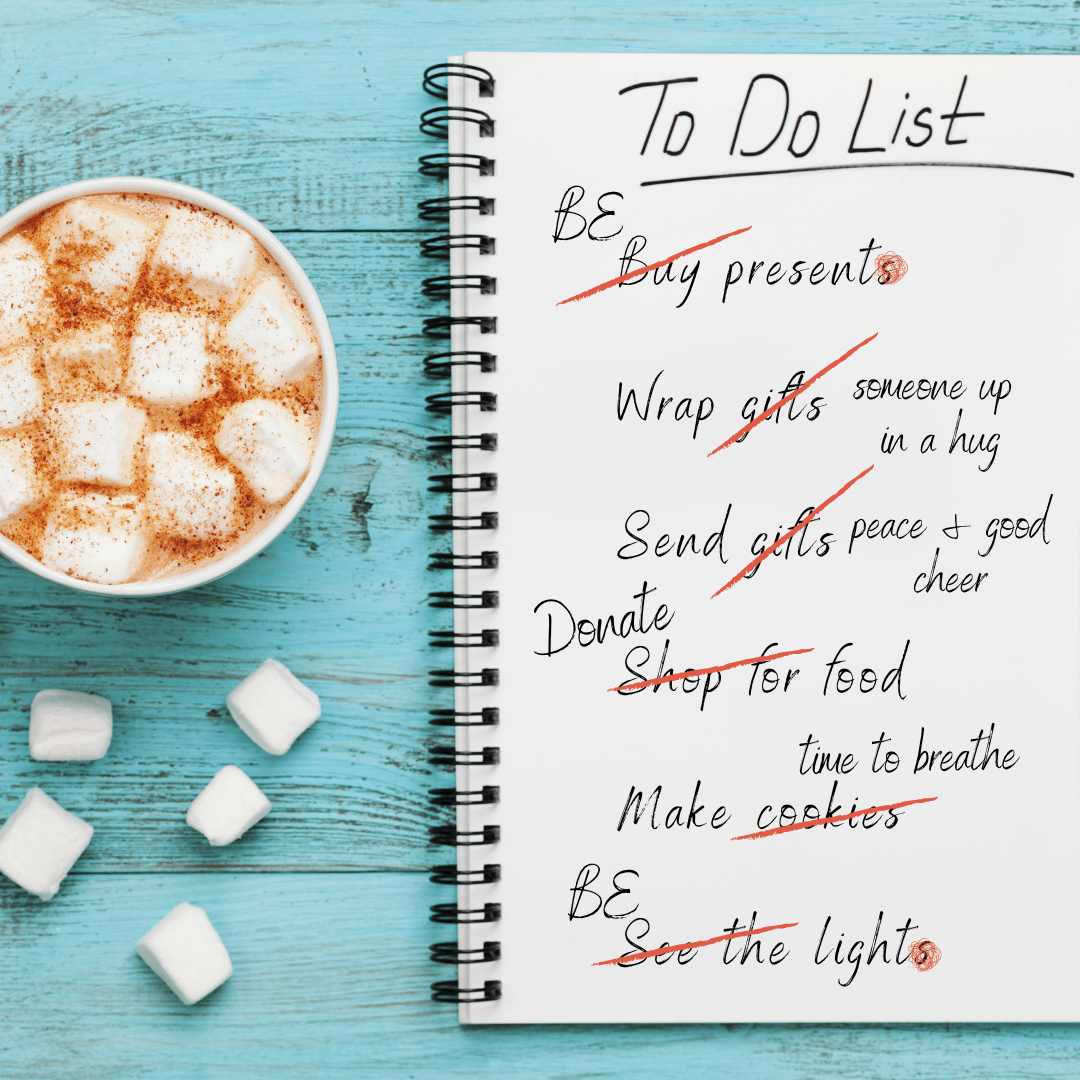 To Do List
BE
Buy presents
Wrap gifts someone up
in a hug
Send gifts peace + good
cheer
Donate
Shop for food
time to breathe
Make cookies
BE
See the lights